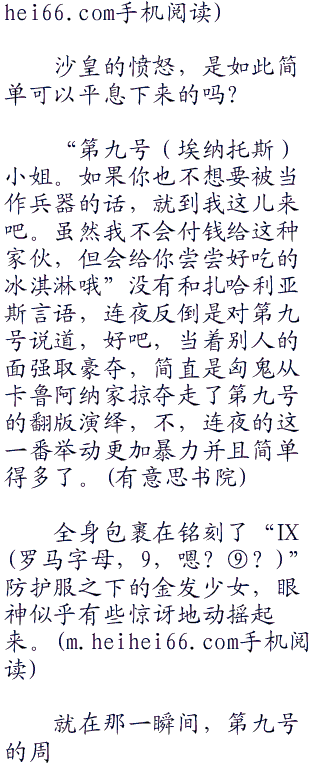 hei66.com手机阅读)
沙皇的愤怒，是如此简
单可以平息下来的吗？
“第九号（埃纳托斯）
小姐。如果你也不想要被当
作兵器的话，就到我这儿来
吧。虽然我不会付钱给这种
家伙，但会给你尝尝好吃的
冰淇淋哦”没有和扎哈利亚
斯言语，连夜反倒是对第九
号说道，好吧，当着别人的
面强取豪夺，简直是匈鬼从
卡鲁阿纳家掠夺走了第九号
的翻版演绎，不，连夜的这
一番举动更加暴力并且简单
得多了。(有意思书院)
全身包裹在铭刻了“IX
(罗马字母，9，嗯？⑨？)”
防护服之下的金发少女，眼
神似乎有些惊讶地动摇起
来。(m.heihei66.com手机阅
读)
就在那一瞬间，第九号
的周